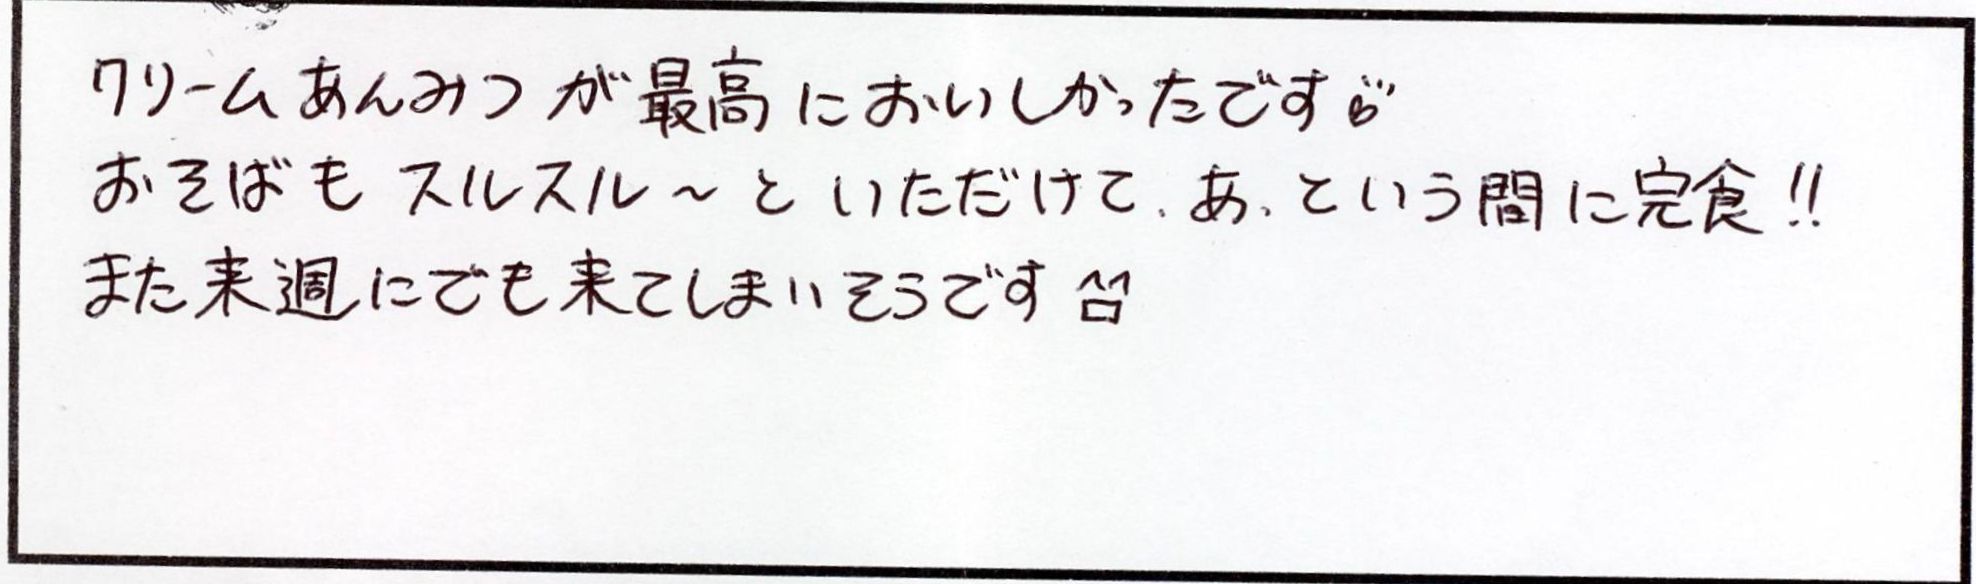 クリームあんみつが最高においしかったです
おそばもスルスル～といただけて、あ、という間に完食!!
また来週にでも来てしまいそうです